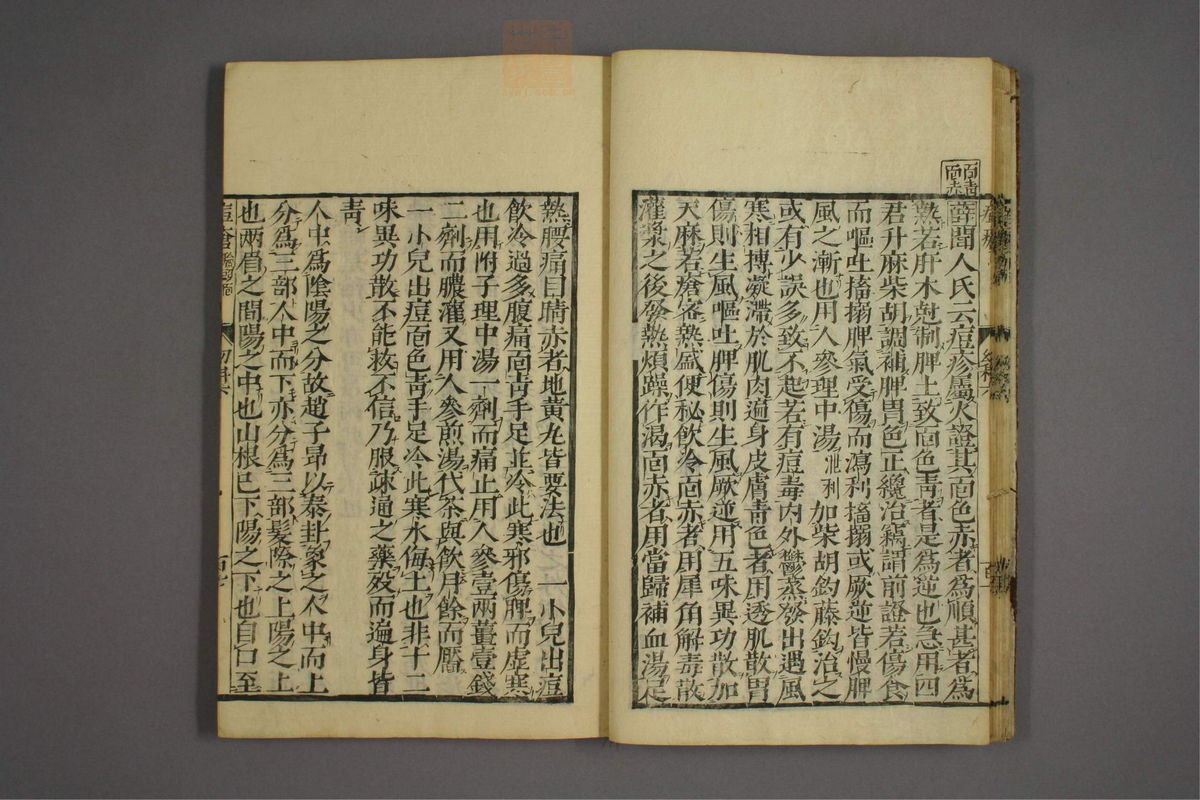 面青
面赤
薛聞人氏云痘疹屬火證其面色赤者為順甚者為
熱若肝木尅制脾土致面色青者是為逆也急用四
君升麻柴胡調補脾胃色正纔治竊謂前證若傷食
而嘔吐搐搦脾氣受傷而瀉利搐搦或厥逆皆慢脾
風之漸也用人參理中湯泄利加柴胡鈎藤鈎治之
或有少誤多致不起若有痘毒內外鬱蒸發出遇風
寒相搏凝滯於肌肉遍身皮膚青色者用透肌散胃
傷則生風嘔吐脾傷則生風厥逆用五味異功散加
天麻若瘡密熱盛便秘飲冷面赤者用犀角解毒散
灌漿之後發熱煩躁作渴面赤者用當歸補血湯足
熱腰痛目睛赤者地黄丸皆要法也 一小兒出痘
飲冷過多腹痛面青手足並冷此寒邪傷脾而虛寒
也用附子理中湯一劑而痛止用人參壹兩薑壹錢
二劑而膿灌又用人參煎湯代茶與飲月餘而靨
一小兒出痘面色青手足冷此寒水侮土也非十二
味異功散不能救不信乃服疎通之藥歿而遍身皆
青
人中為陰陽之分故趙子昂以泰卦象之人中而上
分為三部人中而下亦分為三部髮際之上陽之上
也兩眉之間陽之中也山根已下陽之下也自口至
痘瘡